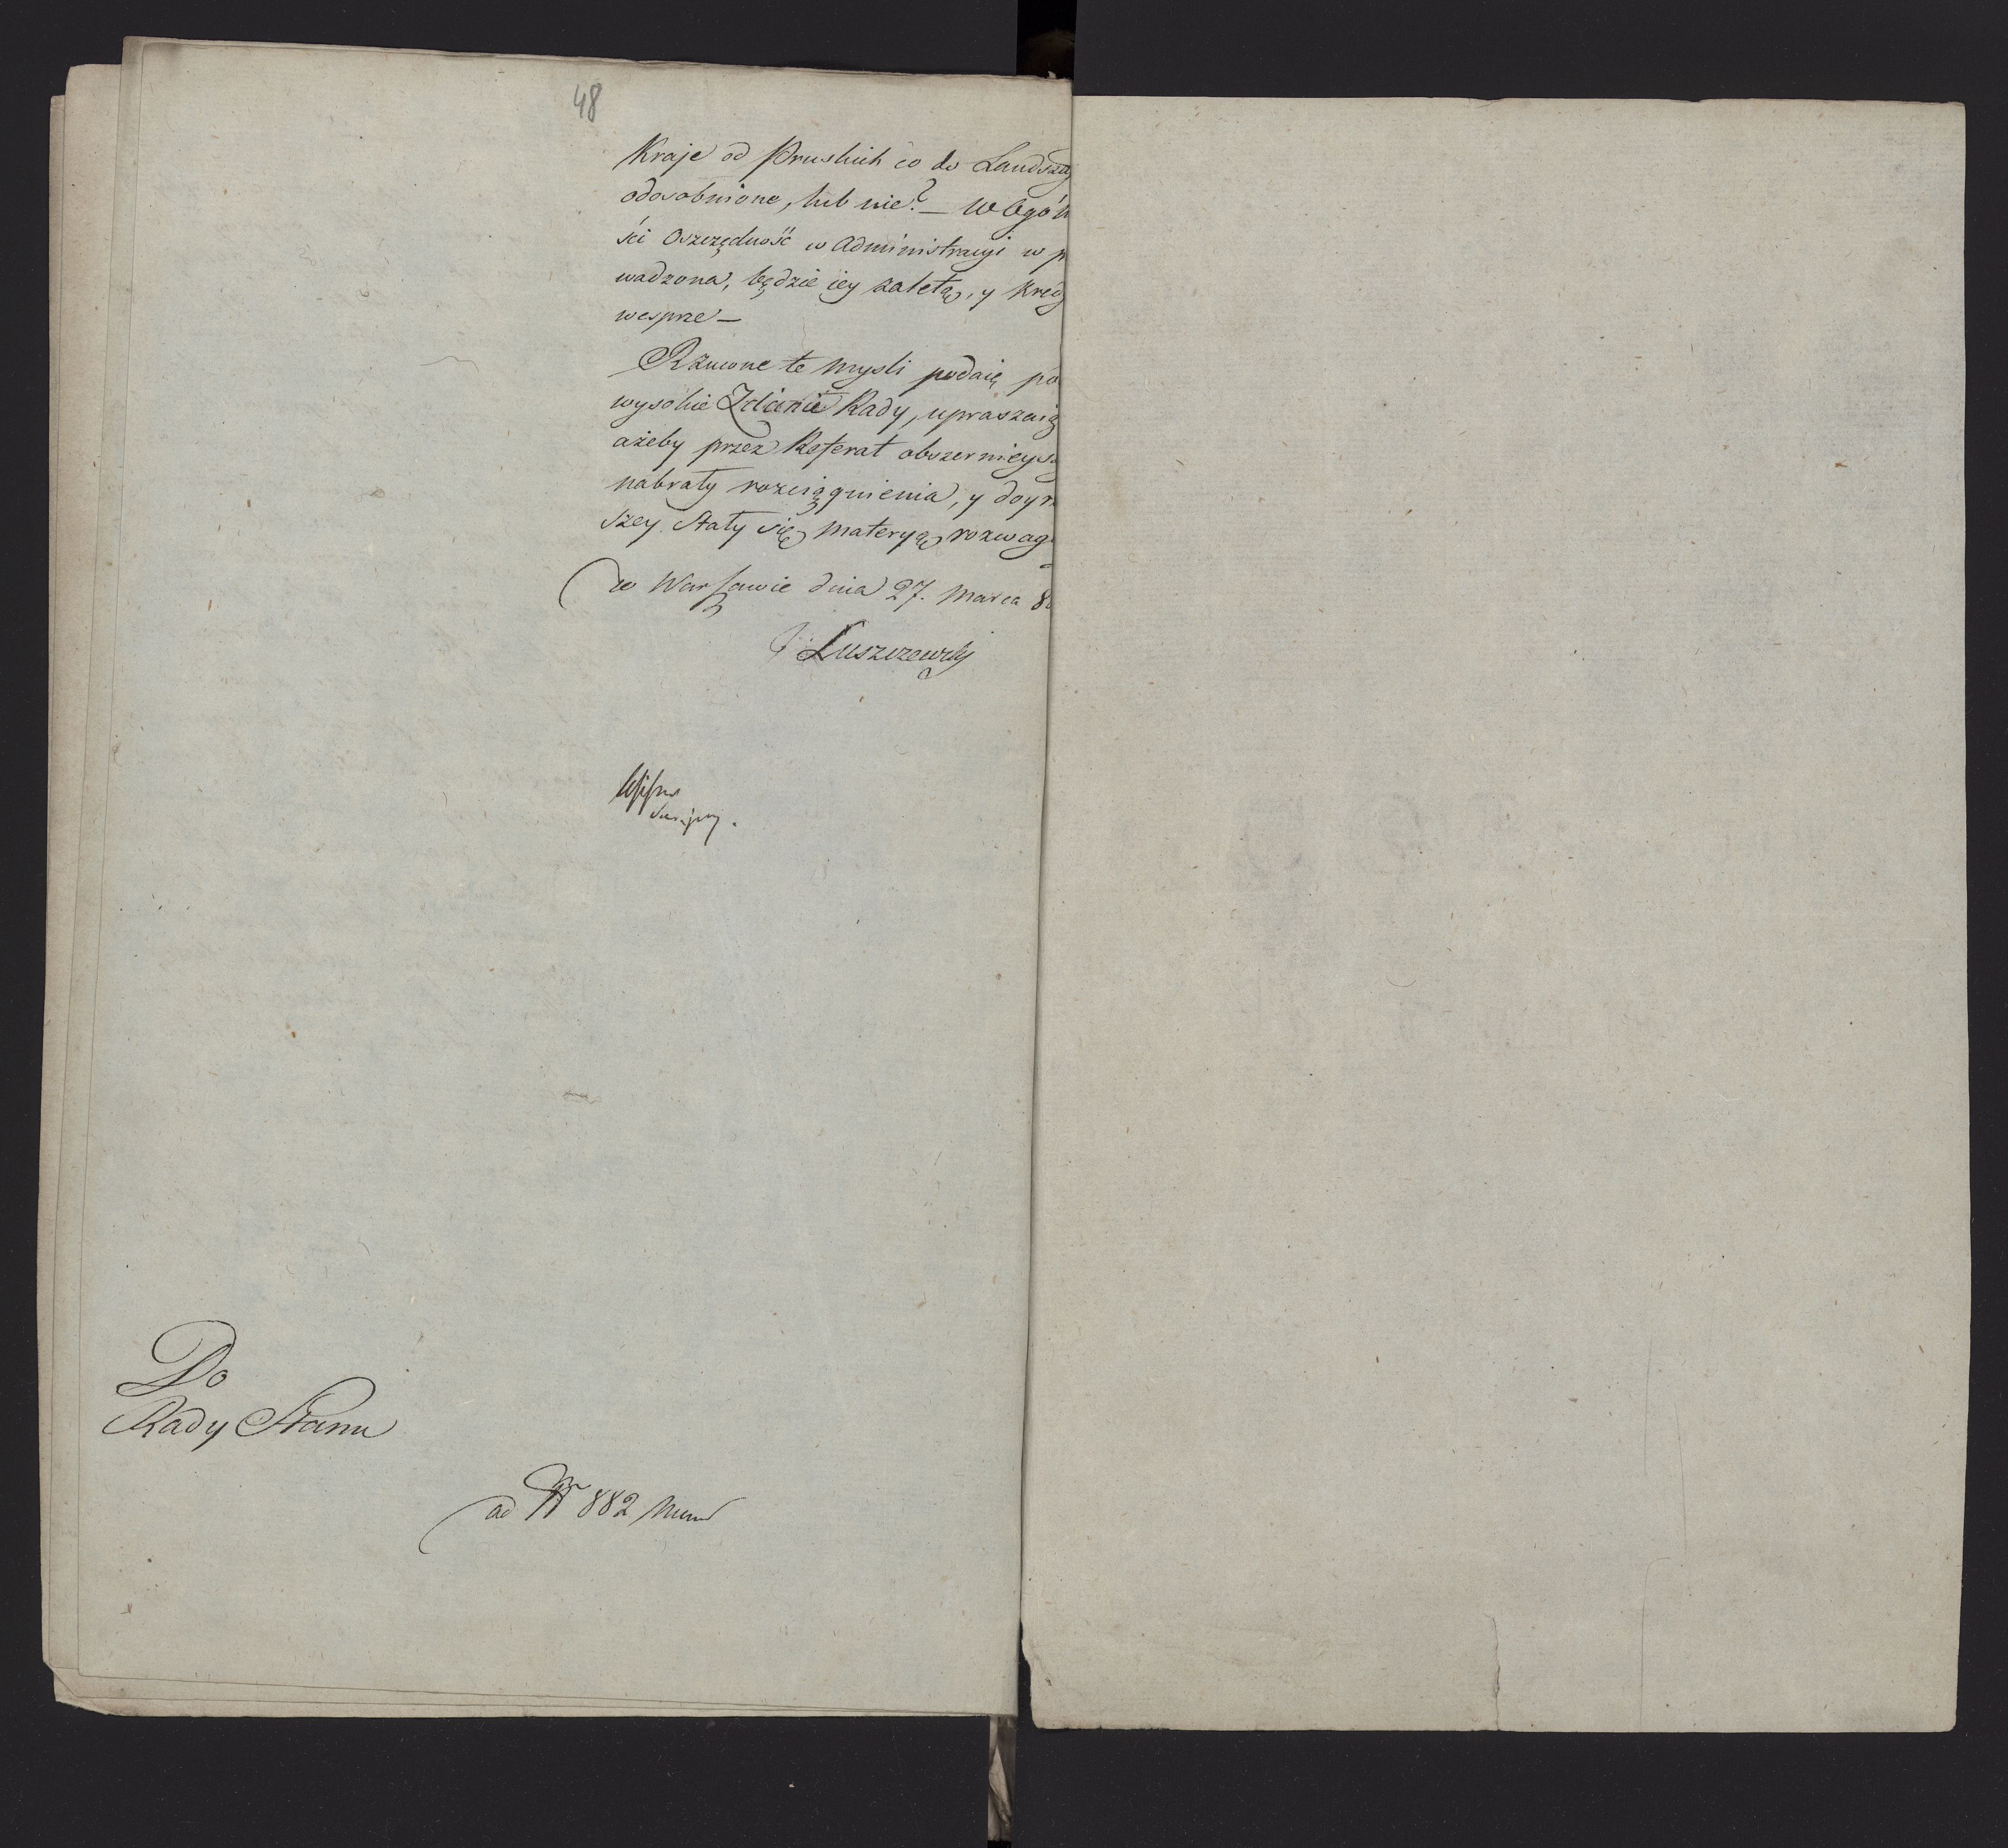 48
Kraje od Pruskich co do Landsza
odosobnione, lub nie? — W Ogól
ści Oszczędność w Administracyi w p
wadzona, będzie iey zaletą, y Kred
wesprze —
Rzucone te mysli podaię po
wysokie Zdanie Rady, upraszaią
ażeby przez Referat obszernieysz
nabrały rozciągnienia, y doyrz
szey stały się materyą rozwagi
w Warszawie dnia 27. Marca 8
J: Łuszczewski
Do
Rady Stanu
ad Nr 882